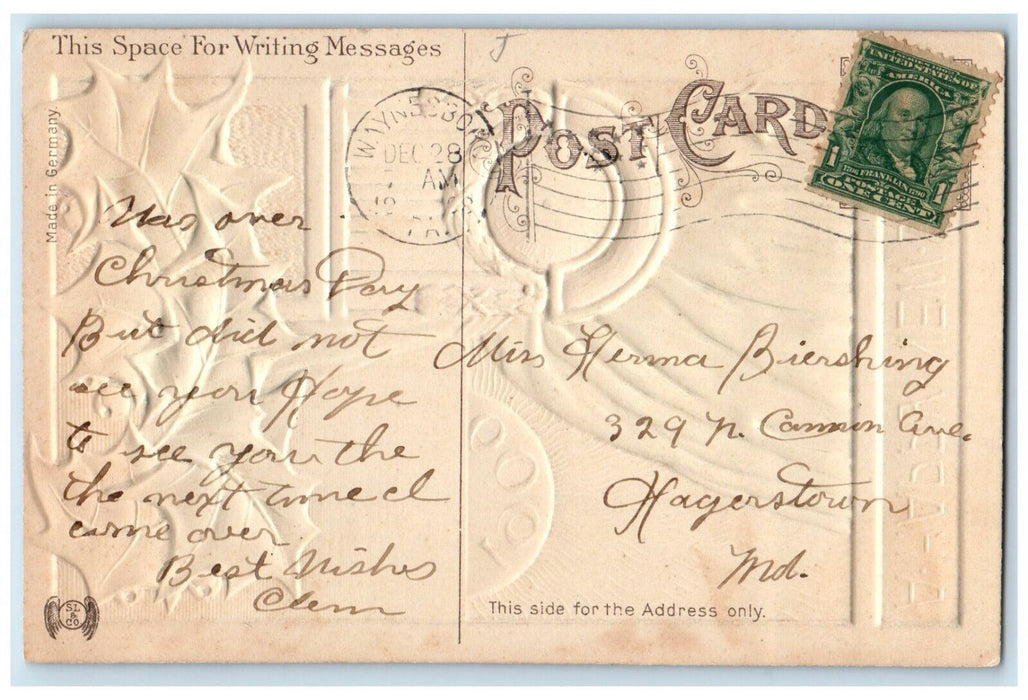 This Space For Writing Messages
Made in Germany
POST CARD
WAYNESBO
DEC 28
AM
PA.
UNITED STATES OF AMERICA
1 1
1706 FRANKLIN 1790
POSTAGE
ONE CENT
Was over
Christmas Day
But did not
see you Hope
to see you the
the next time I
come over
Best Wishes
Clem
Miss Herma Biershing
329 N. Cannon Ave.
Hagerstown
Md.
This side for the Address only.
S.L.
&
CO